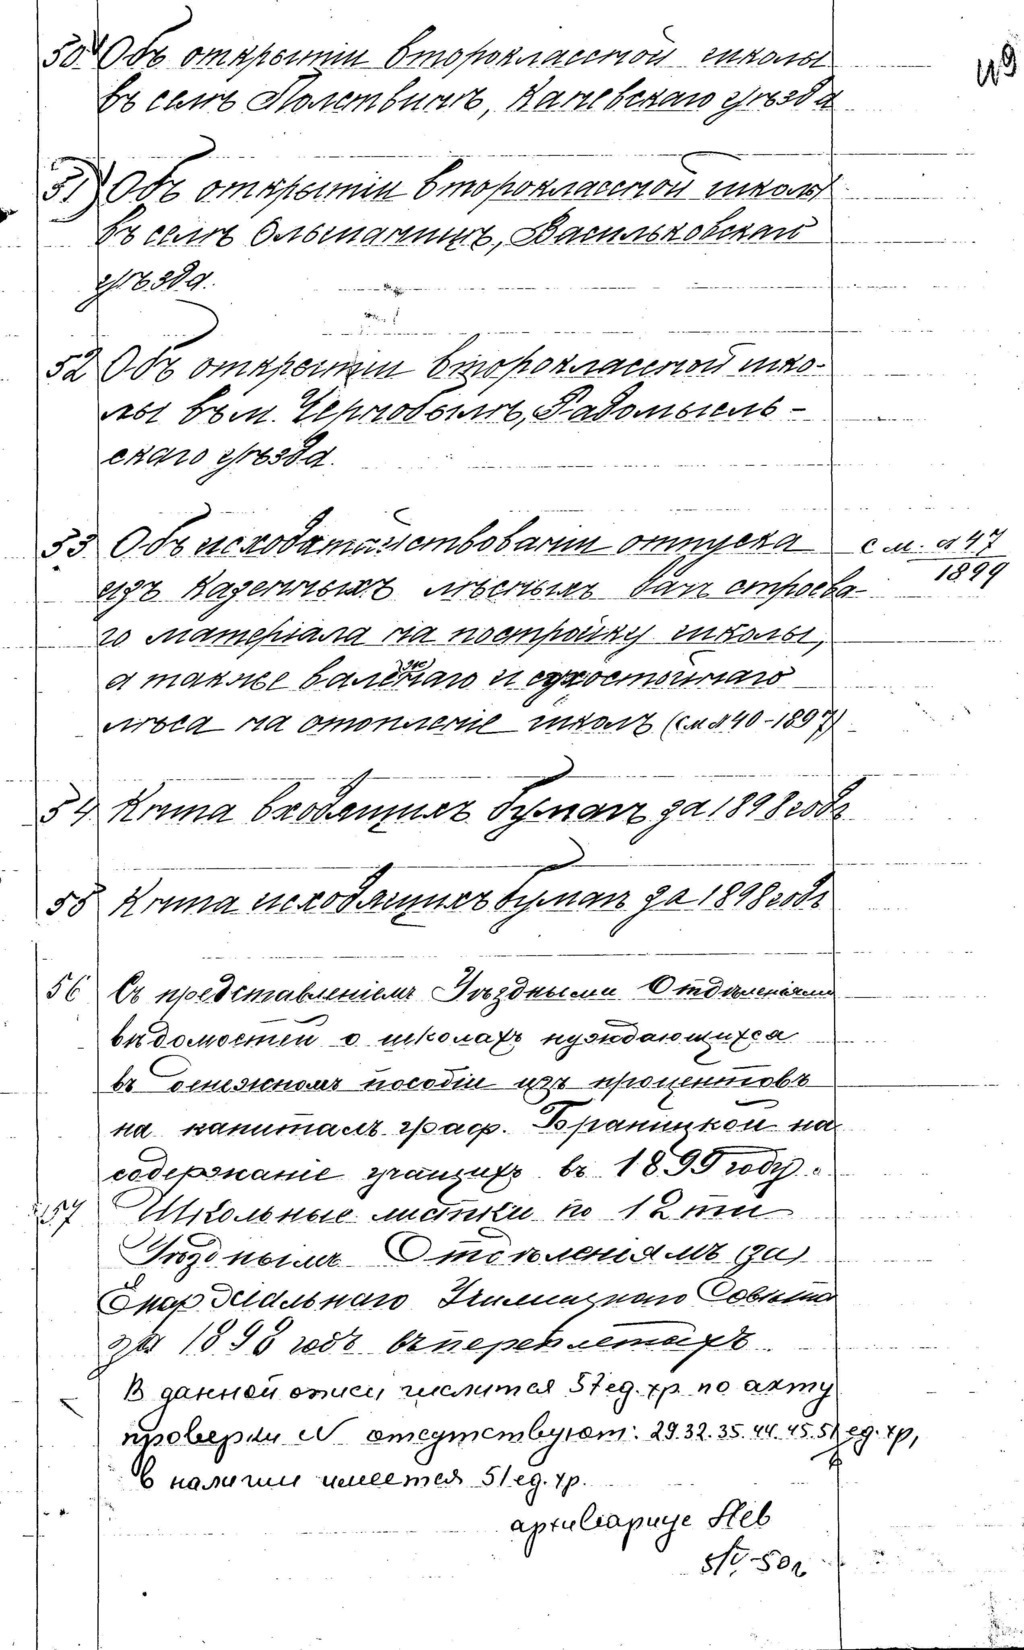 49
50 Объ открытіи второклассной школы
въ селѣ Полствинѣ, Каневскаго уѣзда
51) Объ открытіи второклассной школы
въ селѣ Ольшаницѣ, Васильковскаго
уѣзда.
52 Объ открытіи второклассной шко-
лы въ м. Чернобылѣ, Радомысль-
скаго уѣзда.
53 Объ исходатайствованіи отпуска см. № 47
изъ казенныхъ лѣсныхъ дачъ строева- 1899
го матеріала на постройку школы,
а также валежнаго и сухостойнаго
лѣса на отопленіе школъ (см № 40-1897)
54 Книга входящихъ бумагъ за 1898 годъ
55 Книга исходящихъ бумагъ за 1898 годъ
56 Съ представленіемъ Уѣздными Отдѣленіями
вѣдомостей о школахъ нуждающихся
въ денежномъ пособіи изъ процентовъ
на капиталъ граф. Браницкой на
содержаніе учащихъ въ 1899 году.
57 Школьные листки по 12 ти
Уѣзднымъ Отдѣленіямъ (за)
Епархіальнаго Училищнаго Совѣта
за 1898 годъ въ переплетахъ.
В данной описи числится 57 ед. хр. по акту
проверки N отсутствуют: 29. 32. 35. 44. 45. 51 ед. хр,
в наличии имеется 51 ед. хр.
архивариус
5/V-50г